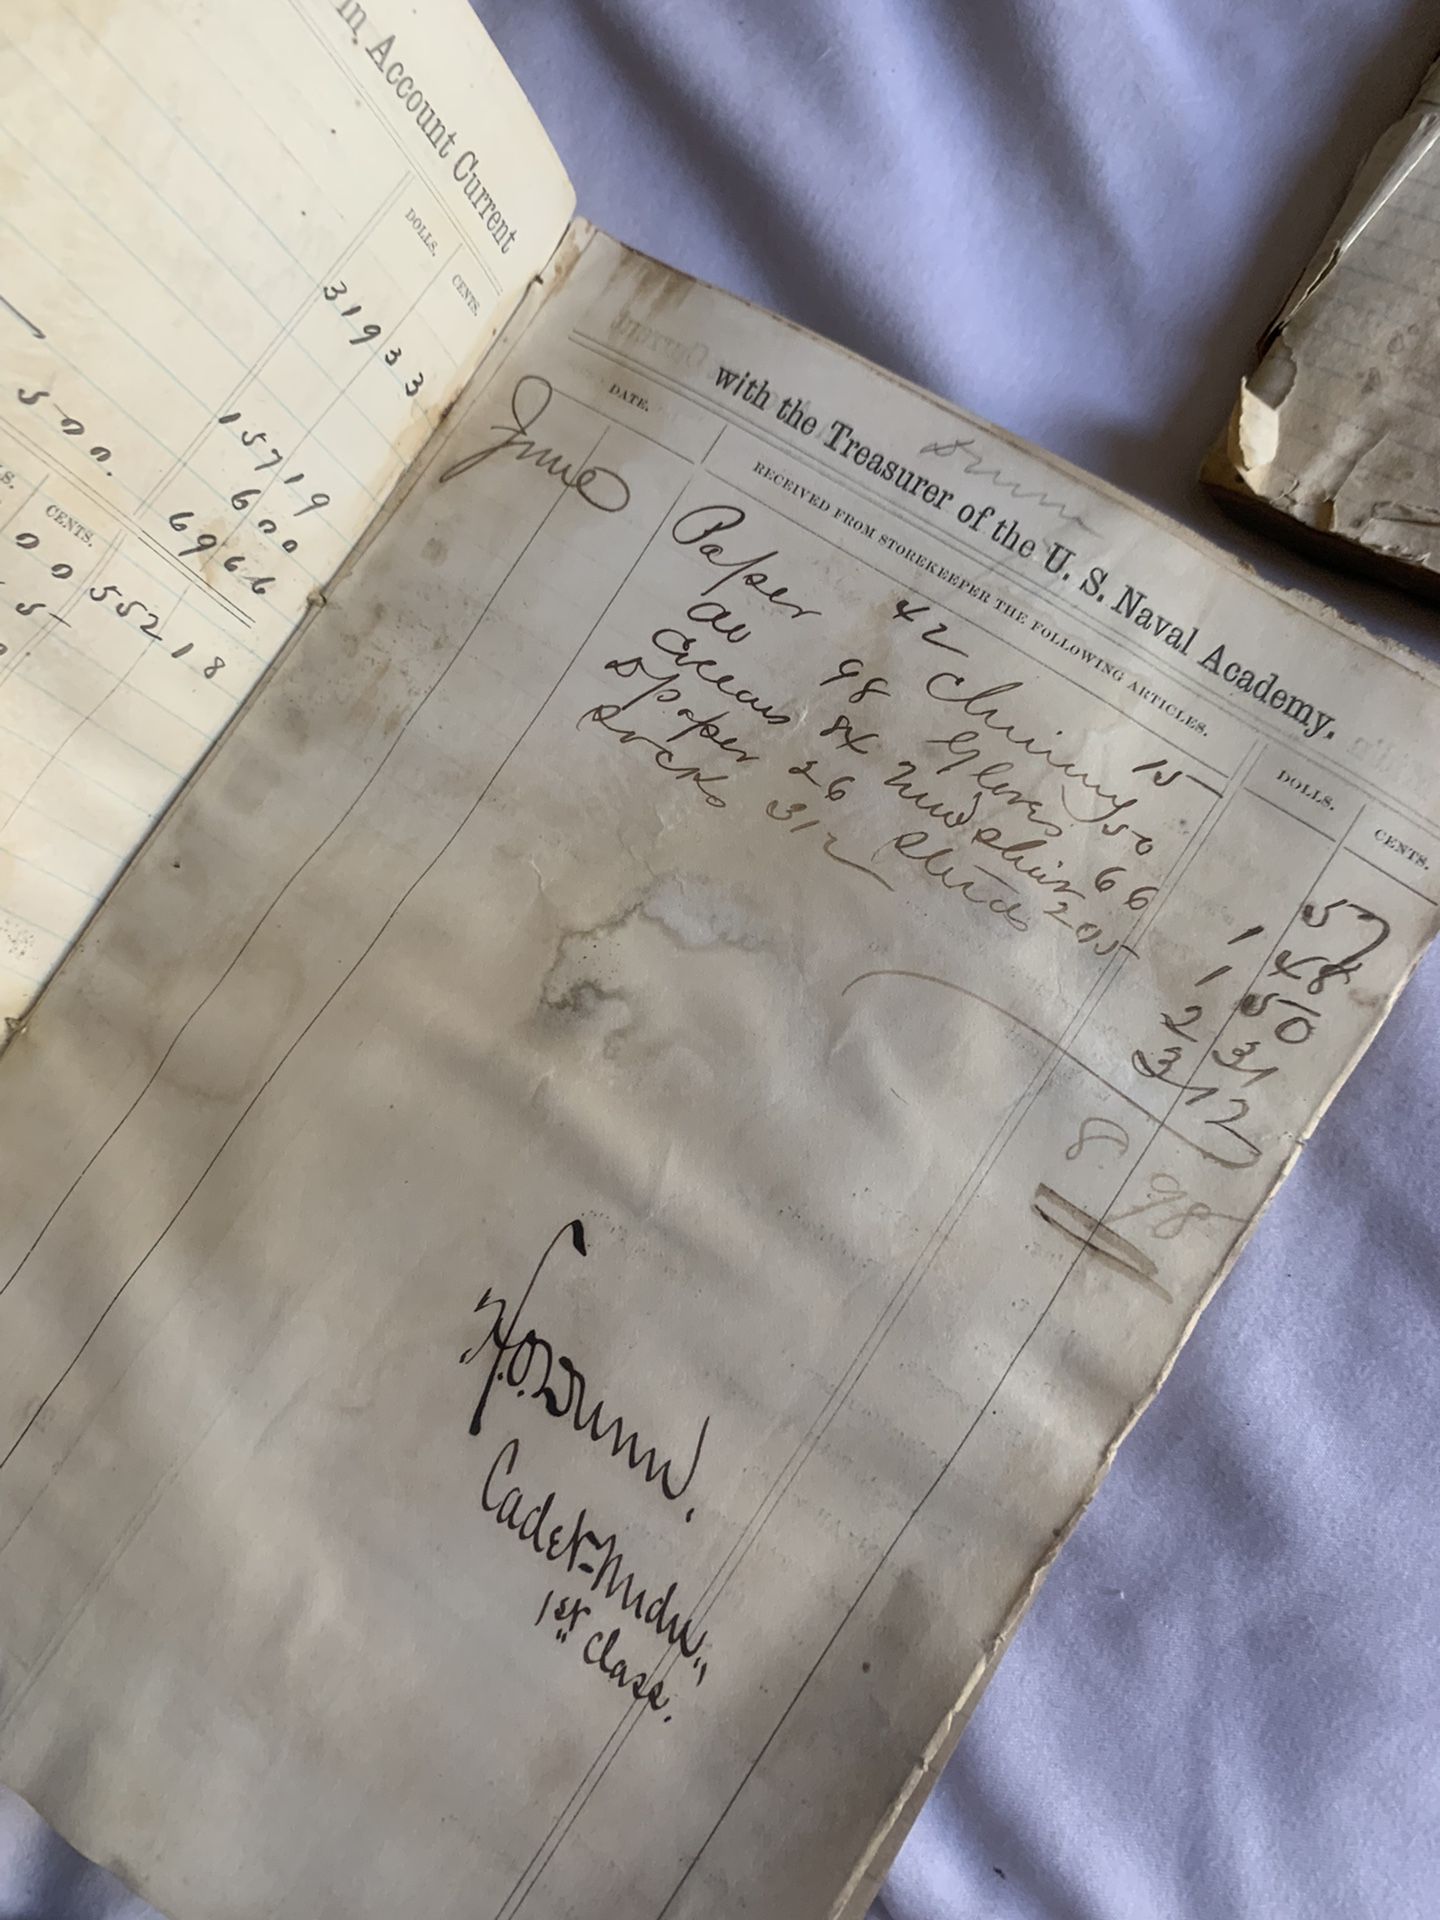 in Account Current
DOLLS. CENTS
319 33
157 19
500. 6 00
69 66
CENTS.
00 552 18
5
Dunn
with the Treasurer of the U. S. Naval Academy.
DATE. RECEIVED FROM STOREKEEPER THE FOLLOWING ARTICLES. DOLLS. CENTS.
June Paper 42 Chimney 15 57
98 Gloves 50 1 48
84 66 1 50
paper 26 Studs 205 2 31
Socks 312 3 12
8. 98
H.O. Dunn.
"Cadet-Midn"
1st Class.